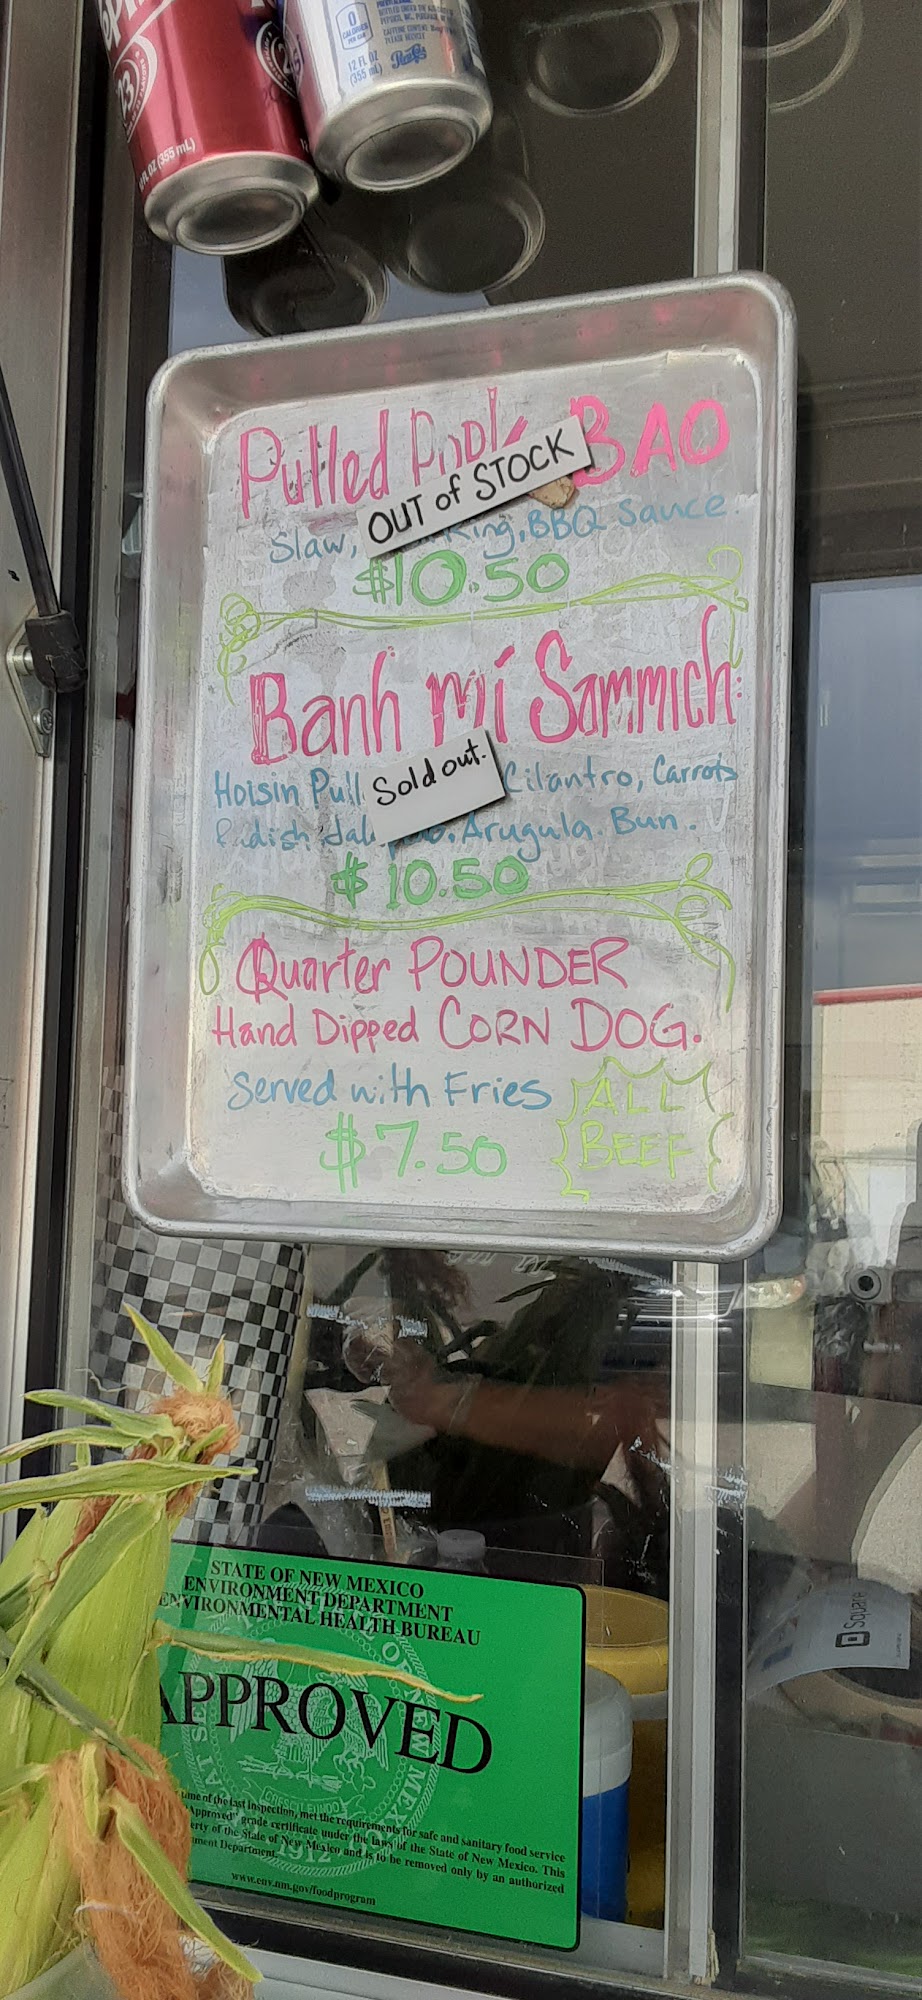 23
FL OZ (355 mL)
0
CALORIES
PER CAN
12 FL OZ
(355 mL)
PLEASE RECYCLE
Pulled Pork BAO
OUT of STOCK
Slaw, King, BBQ Sauce
$10.50
Banh mí Sammich
Hoisin Pull Cilantro, Carrots
Sold out.
Radish Arugula. Bun.
$10.50
Quarter POUNDER
Hand Dipped CORN DOG.
Served with Fries
ALL
BEEF
$7.50
STATE OF NEW MEXICO
ENVIRONMENT DEPARTMENT
ENVIRONMENTAL HEALTH BUREAU
APPROVED
time of the last inspection, met the requirements for safe and sanitary food service
"Approved" grade certificate under the laws of the State of New Mexico. This
erty of the State of New Mexico and is to be removed only by an authorized
nment Department.
1912
www.env.nm.gov/foodprogram
Square